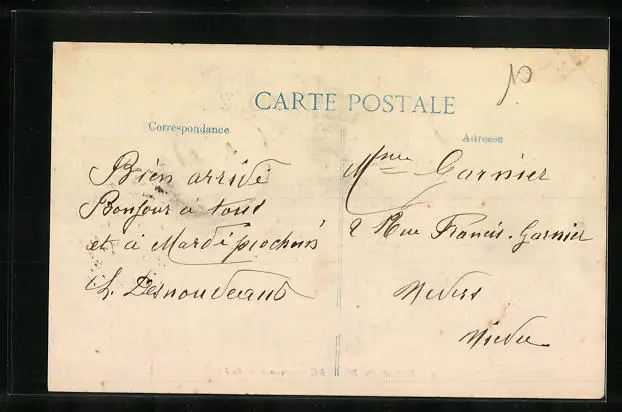 CARTE POSTALE
Correspondance
Adresse
Bien arrivé
Bonjour à tous
et à Mardi prochain
Mme Garnier
2 Rue Francis. Garnier
Nevers
Nièvre